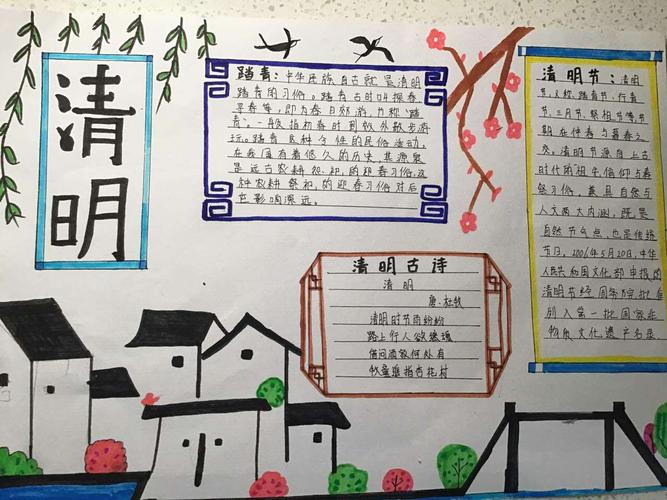 清明
踏青：中华民族自古就是清明
踏青的习俗。踏青古时叫探春、
寻春等，即为春日郊游，也称"踏
青"。一般指初春时到郊外散步游
玩。踏青这种令性的民俗活动，
在我国有着悠久的历史，其源泉
是远古农耕祭祀，的迎春习俗，这
种农耕祭祀，的迎春习俗对后
世影响深远。
清明古诗
清明
唐·杜牧
清明时节雨纷纷
路上行人欲断魂
借问酒家何处有
牧童遥指杏花村
清明节：清明
节，又称踏青节、行青
节、三月节、祭祖节等节
期在仲春与暮春之
交。清明节源自上古
时代的祖先信仰与春
祭习俗，兼具自然与
人文两大内涵，既是
自然节气点，也是传统
节日，2006年5月20日，中华
人民共和国文化部申报的
清明节经国务院批准
列入第一批国家级
物质文化遗产名录